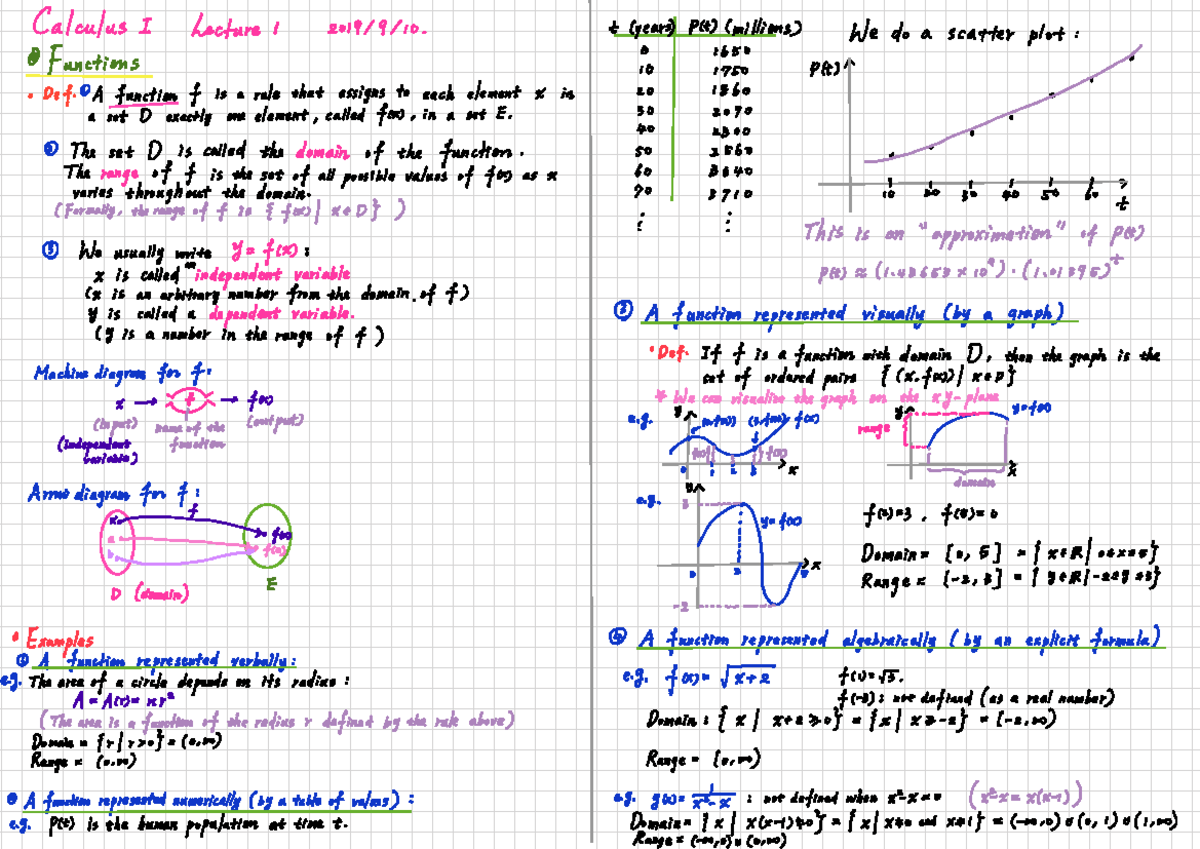 Calculus I Lecture 1 2019/9/10.
Functions
• Def. ① A function f is a rule that assigns to each element x in
a set D exactly one element, called f(x), in a set E.
② The set D is called the domain of the function.
The range of f is the set of all possible values of f(x) as x
varies throughout the domain.
(Formally, the range of f is {f(x) | x∈D})
③ We usually write y = f(x) :
x is called an independent variable
(x is an arbitrary number from the domain of f)
y is called a dependent variable.
(y is a number in the range of f)
Machine diagram for f:
x → f → f(x)
(input) name of the function (output)
(independent variable)
Arrow diagram for f :
f
x f(x)
a f(a)
b
D (domain) E
• Examples
① A function represented verbally :
e.g. The area of a circle depends on its radius :
A = A(r) = πr²
(The area is a function of the radius r defined by the rule above)
Domain = {r | r>0} = (0,∞)
Range = (0,∞)
A function represented numerically (by a table of values) :
e.g. P(t) is the human population at time t.
t (years) P(t) (millions)
0 1650
10 1750
20 1860
30 2070
40 2300
50 2560
60 3040
70 3710
⋮ ⋮
We do a scatter plot :
P(t)
10 20 30 40 50 60 t
This is an "approximation" of P(t)
P(t) ≈ (1.43653 × 10⁹) · (1.01395)ᵗ
③ A function represented visually (by a graph)
• Def. If f is a function with domain D, then the graph is the
set of ordered pairs {(x, f(x)) | x∈D}
* We can visualize the graph on the xy-plane
e.g. y f(x) x
range y y=f(x) x
domain
e.g. y 3 y=f(x)
0 2 5 x
-2
f(2)=3 , f(5)=0
Domain = [0, 5] = {x∈R | 0≤x≤5}
Range = [-2, 3] = {y∈R | -2≤y≤3}
④ A function represented algebraically (by an explicit formula)
e.g. f(x) = √x+2 f(3)=√5.
f(-3) : not defined (as a real number)
Domain : {x | x+2≥0} = {x | x≥-2} = [-2,∞)
Range = [0,∞)
e.g. g(x) = 1/x²-x : not defined when x²-x=0 (x²-x = x(x-1))
Domain = {x | x(x-1)≠0} = {x | x≠0 and x≠1} = (-∞,0) ∪ (0,1) ∪ (1,∞)
Range = (-∞,0) ∪ (0,∞)